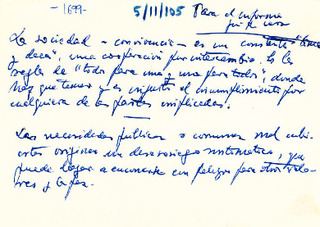 -1699-
5/11/105
Para el informe
La sociedad - convivencia - es un constante "dar
y decir", una cooperación por intercambio. Es la
regla de "todo para uno y uno para todos", donde
hay que temer y es injusto el incumplimiento por
cualquiera de las partes implicadas.
Las necesidades públicas o comunes mal cubi-
ertas originan un desasosiego sistemático, que
puede llegar a encararse con peligro para otros valo-
res y la paz.